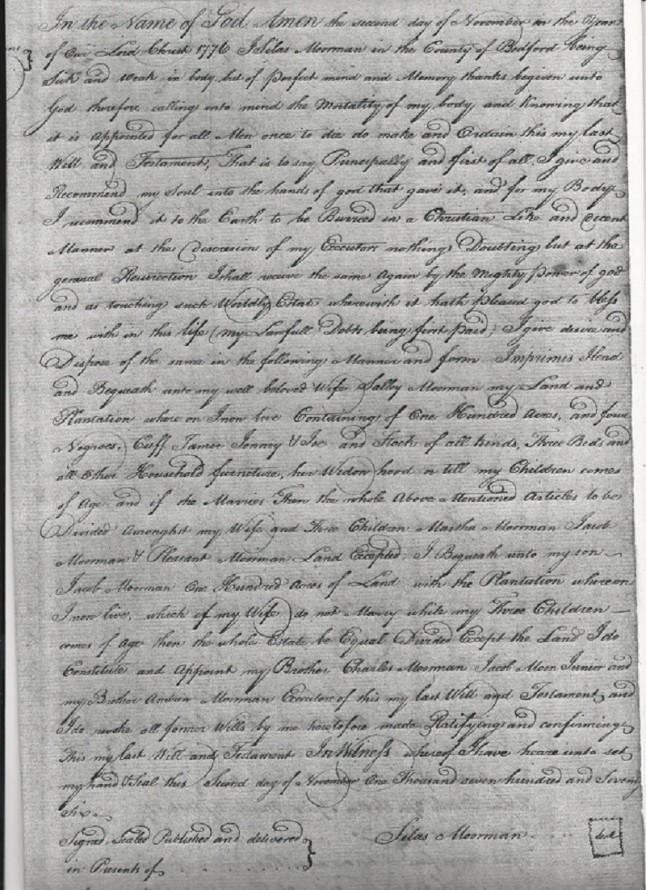 In the Name of God Amen the second day of November in the Year
of Our Lord Christ 1776 I Silas Moorman in the County of Bedford being
Sick and Weak in body but of perfect mind and Memory thanks be given unto
God therefore calling into mind the Mortality of my body and Knowing that
it is Appointed for all Men once to die do make and Ordain this my last
Will and Testament, That is to say Principally and first of all, I give and
Recommend my Soul into the hands of god that gave it, and for my Body
I recommend it to the Earth to be Burried in a Christian Like and Decent
Manner at the Discresion of my Executors nothing Doubting but at the
general Resurection I shall receive the same Again by the Mighty Power of god
and as touching such Worldly Estate wherewith it hath pleased god to bless
me with in this life (my Lawfull Debts being first Paid) I give devise and
Dispose of the same in the following Manner and form Imprimis I lend
and Bequeath unto my well beloved Wife Salley Moorman my Land and
Plantation where on I now live Containing of One Hundred Acres, and four
Negroes, Cuff James Jenney & and Stock of all kinds, Three Beds and
all Other Household furneture, her Widow hood or till my Children comes
of Age and if she Marries Then the whole Above Mentioned Articles to be
Divided Amonghst my Wife and Three Children Martha Moorman Jacob
Moorman & Pleasant Moorman Land Excepted, I Bequeath unto my son
Jacob Moorman One Hundred Acres of Land with the Plantation whereon
I now live, which if my Wife do not Marry while my Three Children
comes of Age then the whole Estate be Equal Divided Except the Land I do
Constitute and Appoint my Brother Charles Moorman Jacob Moon Junior and
my Brother Andrew Moorman Executors of this my last Will and Testament and
I do revoke all former Wills by me heretofore made Ratifying and confirming
This my last Will and Testament In Witness whereof I have heare unto set
my hand & Seal this Second day of November One Thousand seven hundred and Seventy
Six.
Signed Sealed Published and delivered
in Presents of
Silas Moorman